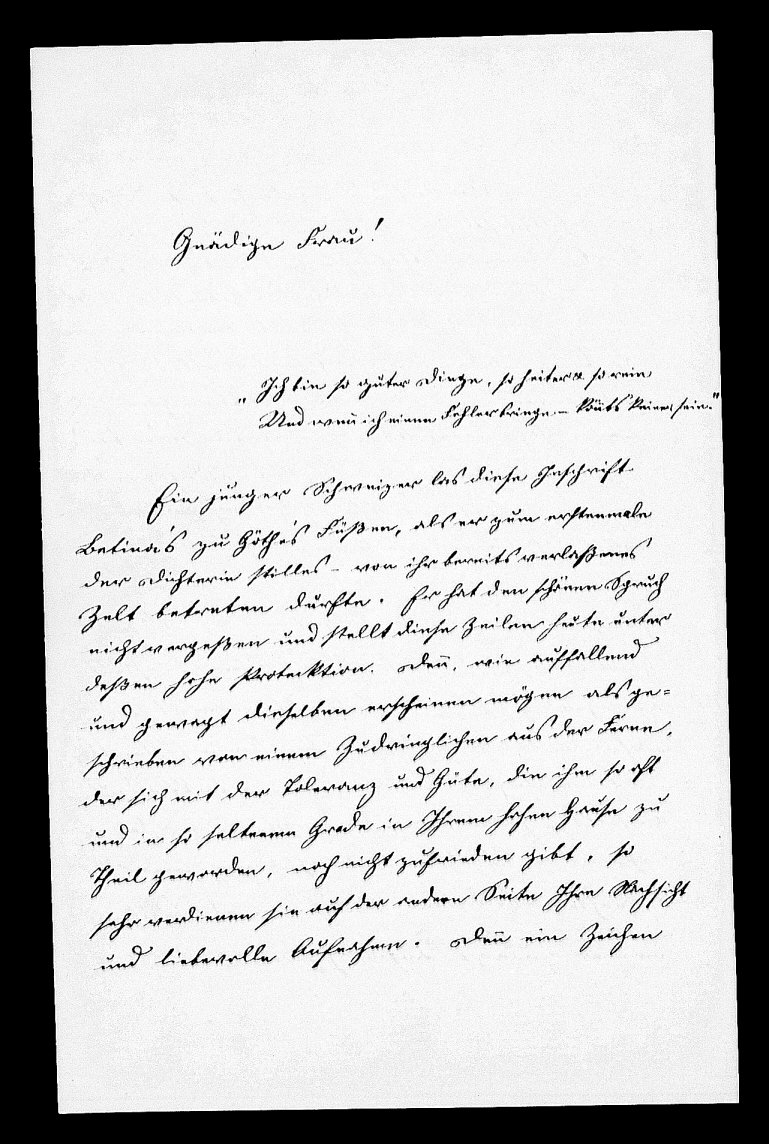 Gnädige Frau!
"Ich bin so guter Dinge, so heiter & so rein
Und wenn̄ ich einen Fehler bringe – könt's keiner sein."
Ein junger Schweizer las diese Inschrift
Betina's zu Göthe's Füßen, als er zum erstenmale
der Dichterin stilles – von ihr bereits verlaßenes
Zelt betreten durfte. Er hat den schönen Spruch
nicht vergeßen und stellt diese Zeilen heute unter
deßen hohe Protecktion. Deñ, wie auffallend
und gewagt dieselben erscheinen mögen als ge=
schrieben von einem Zudringlichen aus der Ferne,
der sich mit der Toleranz und Güte, die ihm so oft
und in so seltenem Grade in Ihrem hohen Hause zu
Theil geworden, noch nicht zufrieden gibt, so
sehr verdienen sie auf der andern Seite Ihre Nachsicht
und liebevolle Aufnahme. Deñ ein Zeichen